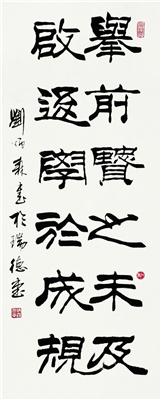 舉前賢之未及
啟返學於成規
劉炳森書於瑞德室